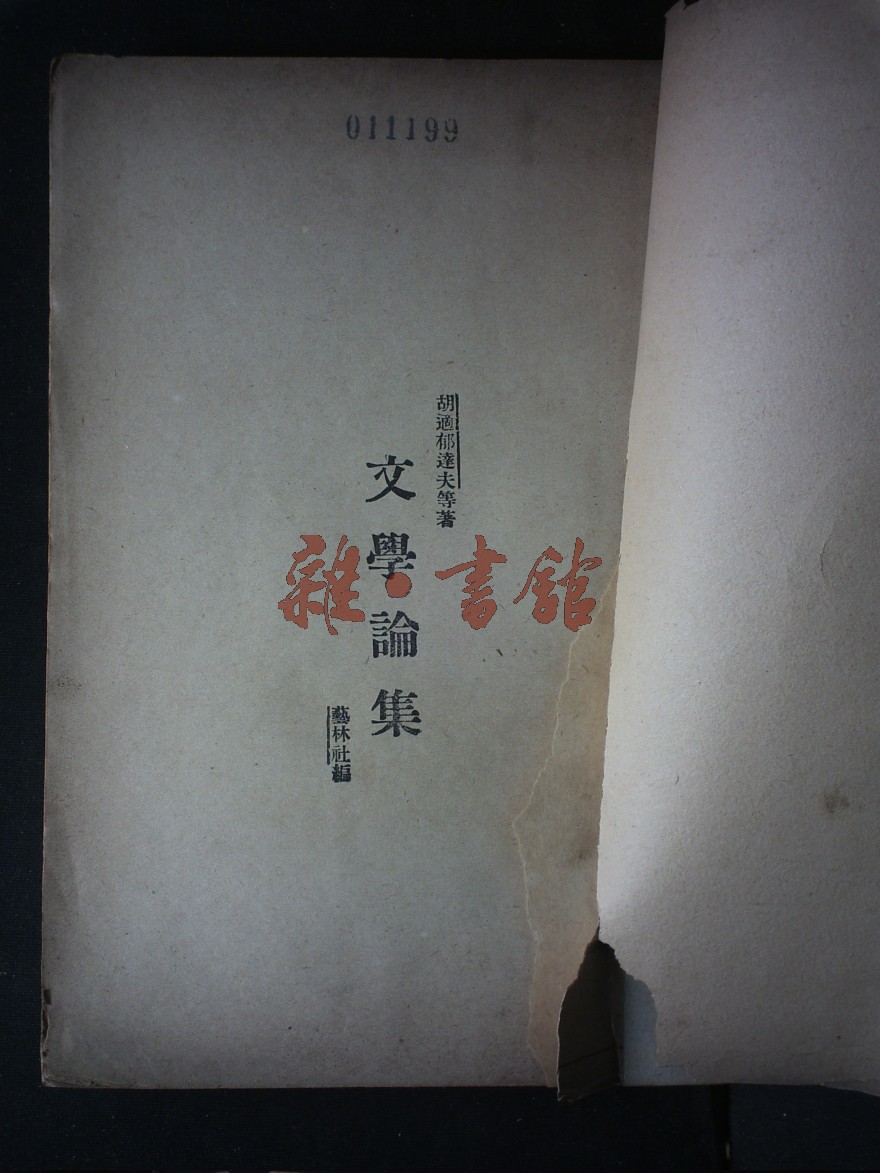 011199
胡適郁達夫等著
文學論集
藝林社編
雜·書館